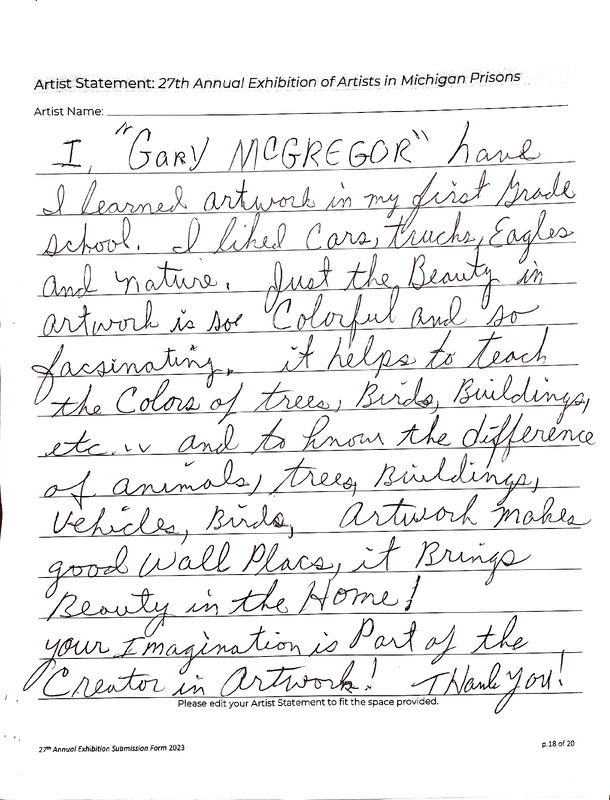 Artist Statement: 27th Annual Exhibition of Artists in Michigan Prisons
Artist Name:
I, "Gary McGREGOR" have
I learned artwork in my first Grade
school. I liked Cars, trucks, Eagles
and nature. Just the Beauty in
artwork is so Colorful and so
facsinating. it helps to teach
the Colors of trees, Birds, Buildings,
etc... and to know the difference
of animals, trees, Buildings,
Vehicles, Birds, Artwork makes
good Wall Placs, it Brings
Beauty in the Home!
your Imagination is Part of the
Creator in Artwork! THank You!
Please edit your Artist Statement to fit the space provided.
27th Annual Exhibition Submission Form 2023
p.18 of 20